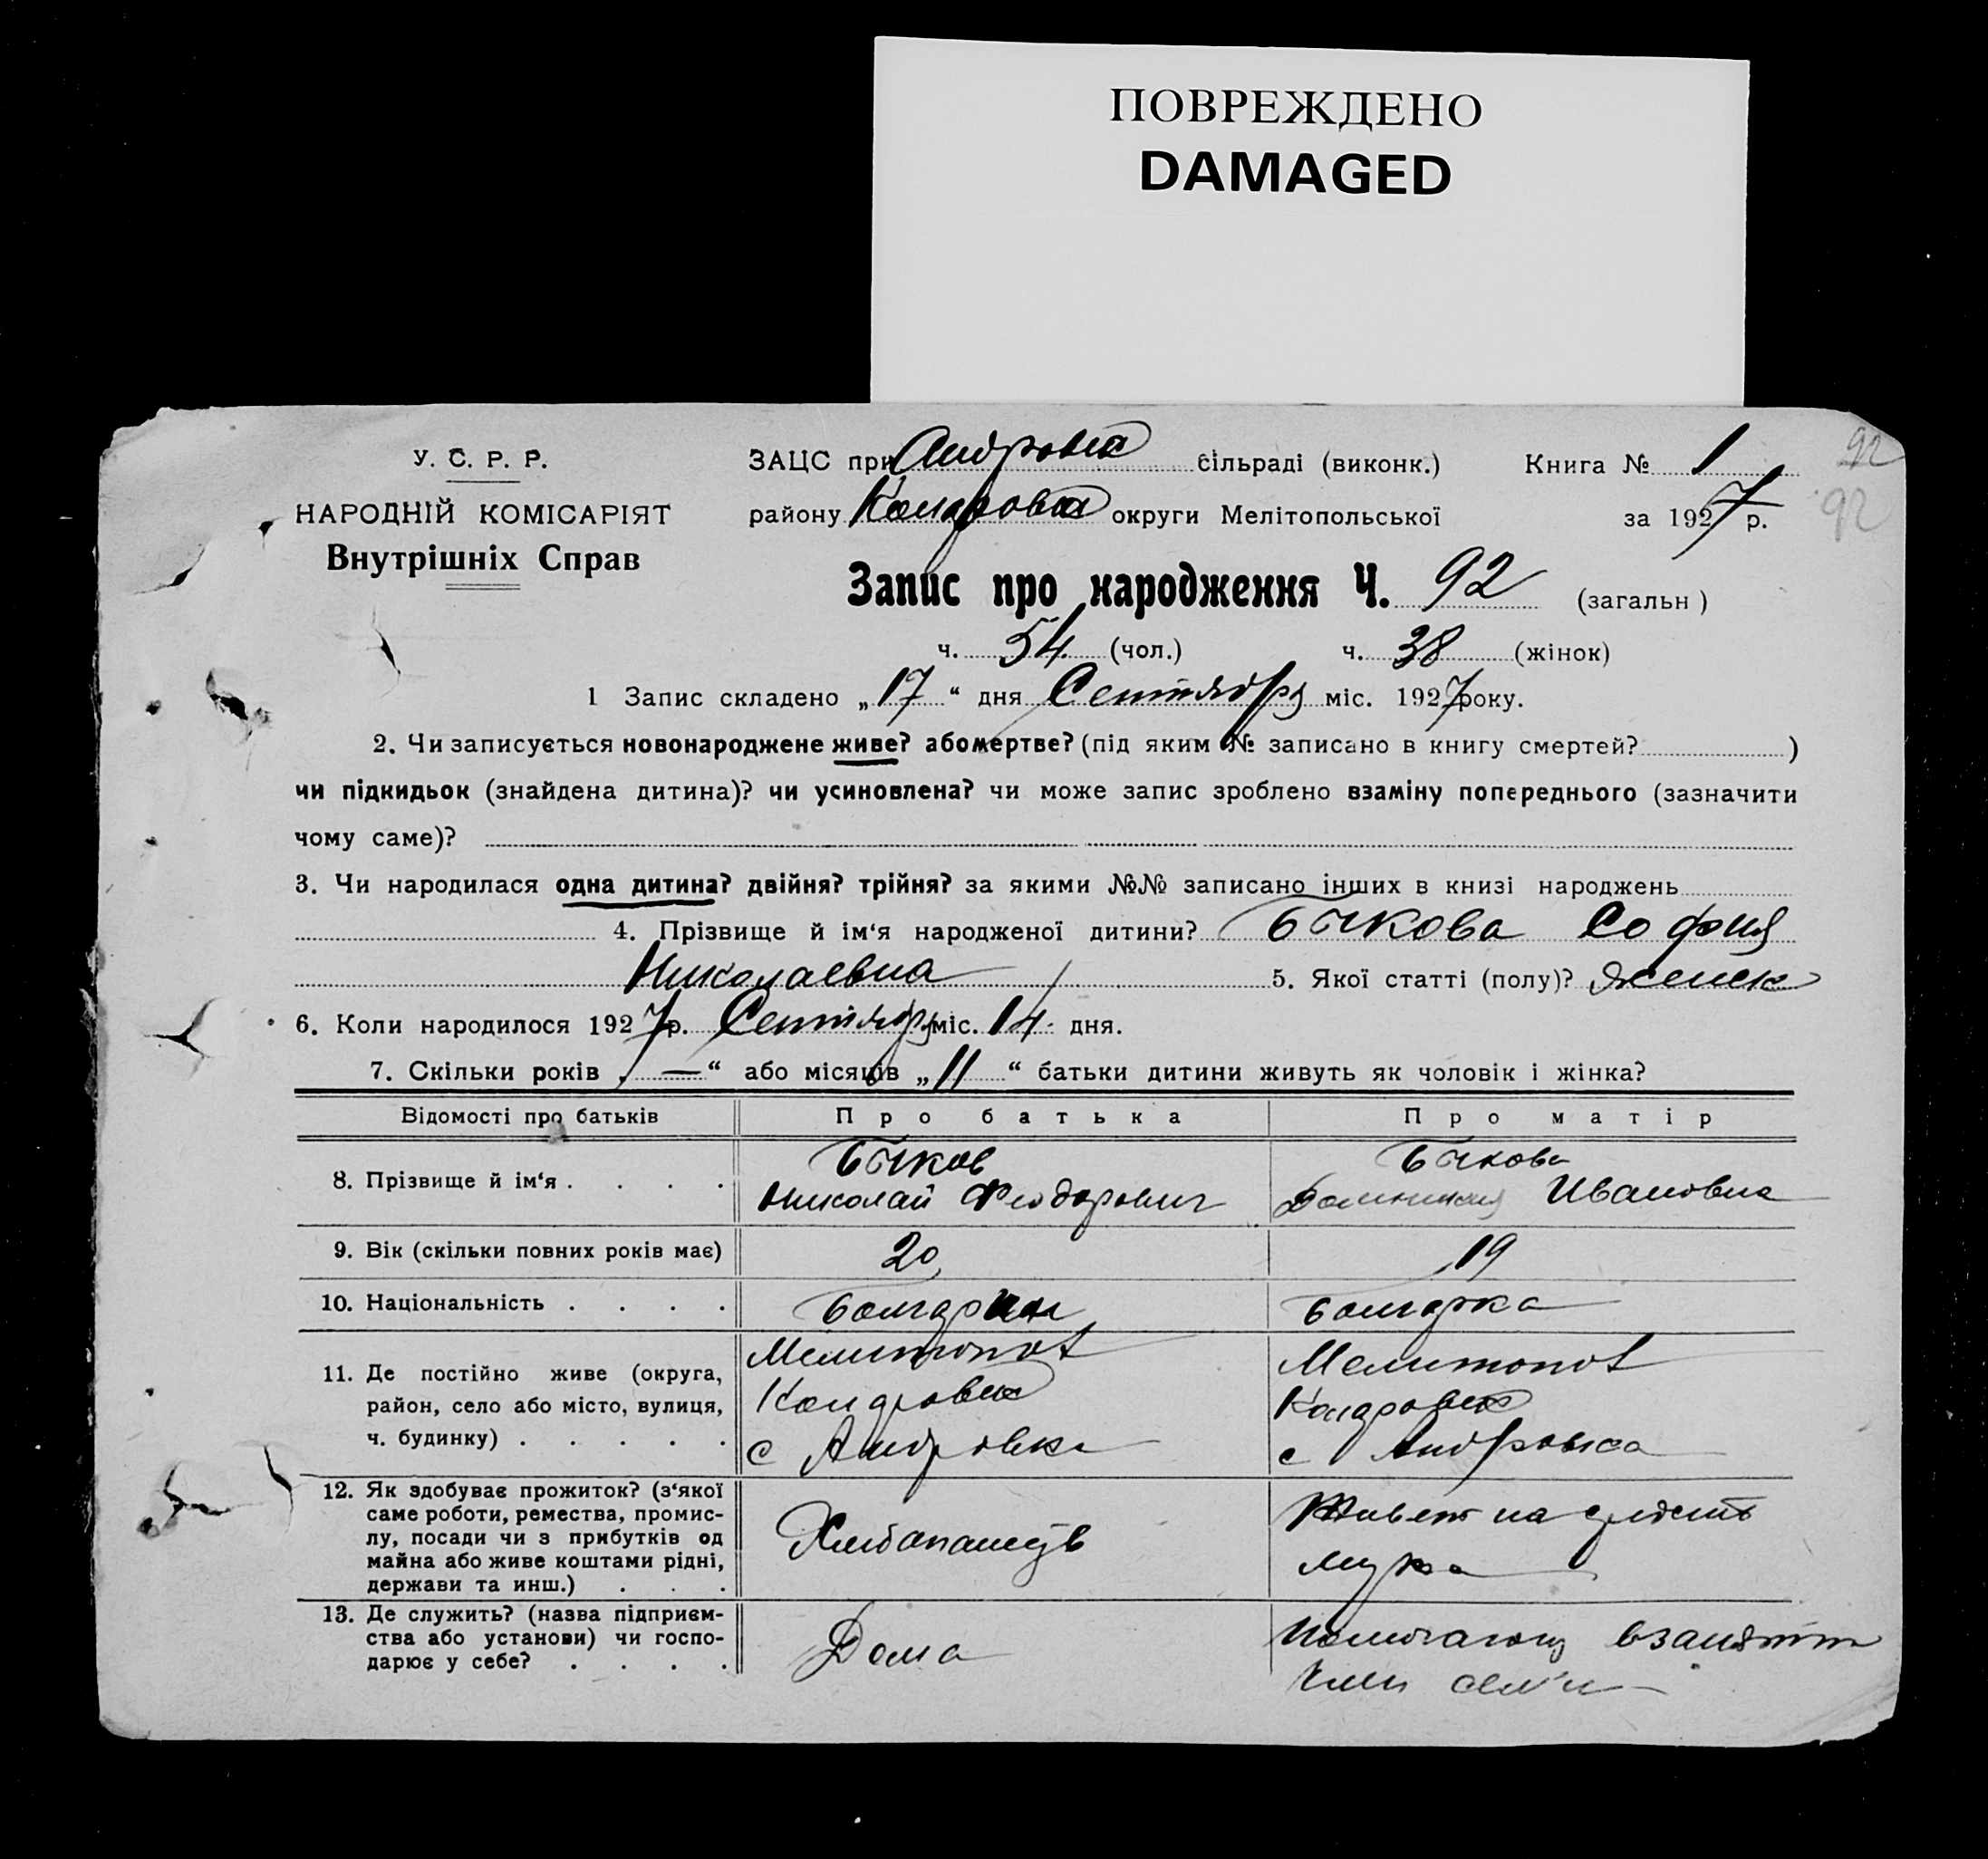 ПОВРЕЖДЕНО
DAMAGED
92
У. С. Р. Р. ЗАЦС при Андровка сільраді (виконк.) Книга № 1
92
НАРОДНІЙ КОМІСАРІЯТ району округи Мелітопольської за 1927 р.
Внутрішніх Справ
Запис про народження Ч. 92 (загальн)
ч. 54 (чол.) ч. 38 (жінок)
1 Запис складено „17“ дня Сентября міс. 1927 року.
2. Чи записується новонароджене живе? або мертве? (під яким № записано в книгу смертей? )
чи підкидьок (знайдена дитина)? чи усиновлена? чи може запис зроблено взаміну попереднього (зазначити
чому саме)?
3. Чи народилася одна дитина? двійня? трійня? за якими №№ записано інших в книзі народжень
4. Прізвище й ім‘я народженої дитини? Бычкова София
Николаевна 5. Якої статті (полу)? женск
6. Коли народилося 1927 р. Сентября міс. 14 дня.
7. Скільки років „—“ або місяців „11“ батьки дитини живуть як чоловік і жінка?
Відомості про батьків Про батька Про матір
Бычков Бычкова
8. Прізвище й ім‘я . . . . Николай Феодорович Ивановна
9. Вік (скільки повних років має) 20 19
10. Національність . . . . Болгарин Болгарка
11. Де постійно живе (округа, Мелитопол Мелитопол
район, село або місто, вулиця,
ч. будинку) . . . . . с Андровка с Андровка
12. Як здобуває прожиток? (з‘якої
саме роботи, ремества, промис-
лу, посади чи з прибутків од
майна або живе коштами рідні,
держави та инш.) . . . Хлебопашец Живет на средств
мужа
13. Де служить? (назва підприєм-
ства або установи) чи госпо-
дарює у себе? . . . . Дома